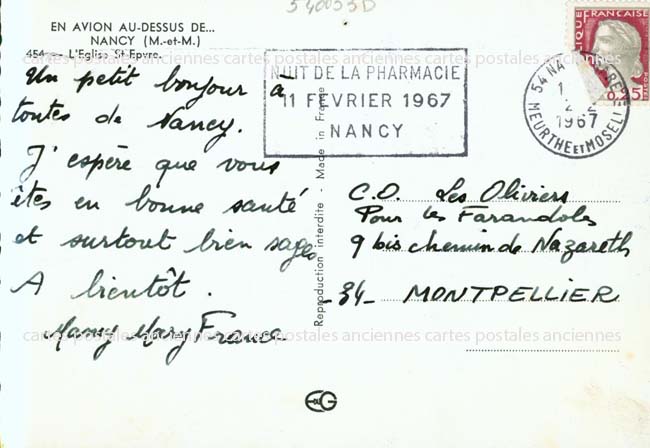 540053D
EN AVION AU-DESSUS DE...
NANCY (M.-et-M.)
454 — L'Eglise St-Epvre.
cartes postales anciennes cartes postales anciennes cartes postales anciennes
Un petit bonjour à
toutes de Nancy.
J'espère que vous
êtes en bonne santé
et surtout bien sages
A bientôt.
Mary France
cartes postales anciennes cartes postales anciennes cartes postales anciennes
NUIT DE LA PHARMACIE
11 FEVRIER 1967
NANCY
54 NANCY
1
2
1967
MEURTHE ET MOSELLE
FRANÇAISE
0,25
Reproduction interdite - Made in France
C.D. Les Oliviers
Pour les Farandoles
9 bis chemin de Nazareth
-34- MONTPELLIER